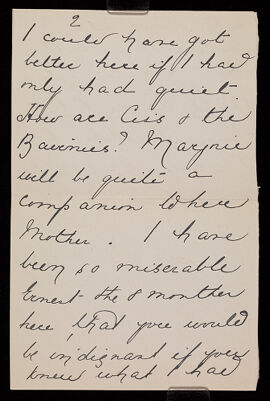 2
I could have got
better here if I had
only had quiet
How are Ciss & the
Bairnies? Marjorie
will be quite a
companion to her
Mother. I have
been so miserable
Ernest - the 8 months
here, that you would
be indignant if you
knew what I had